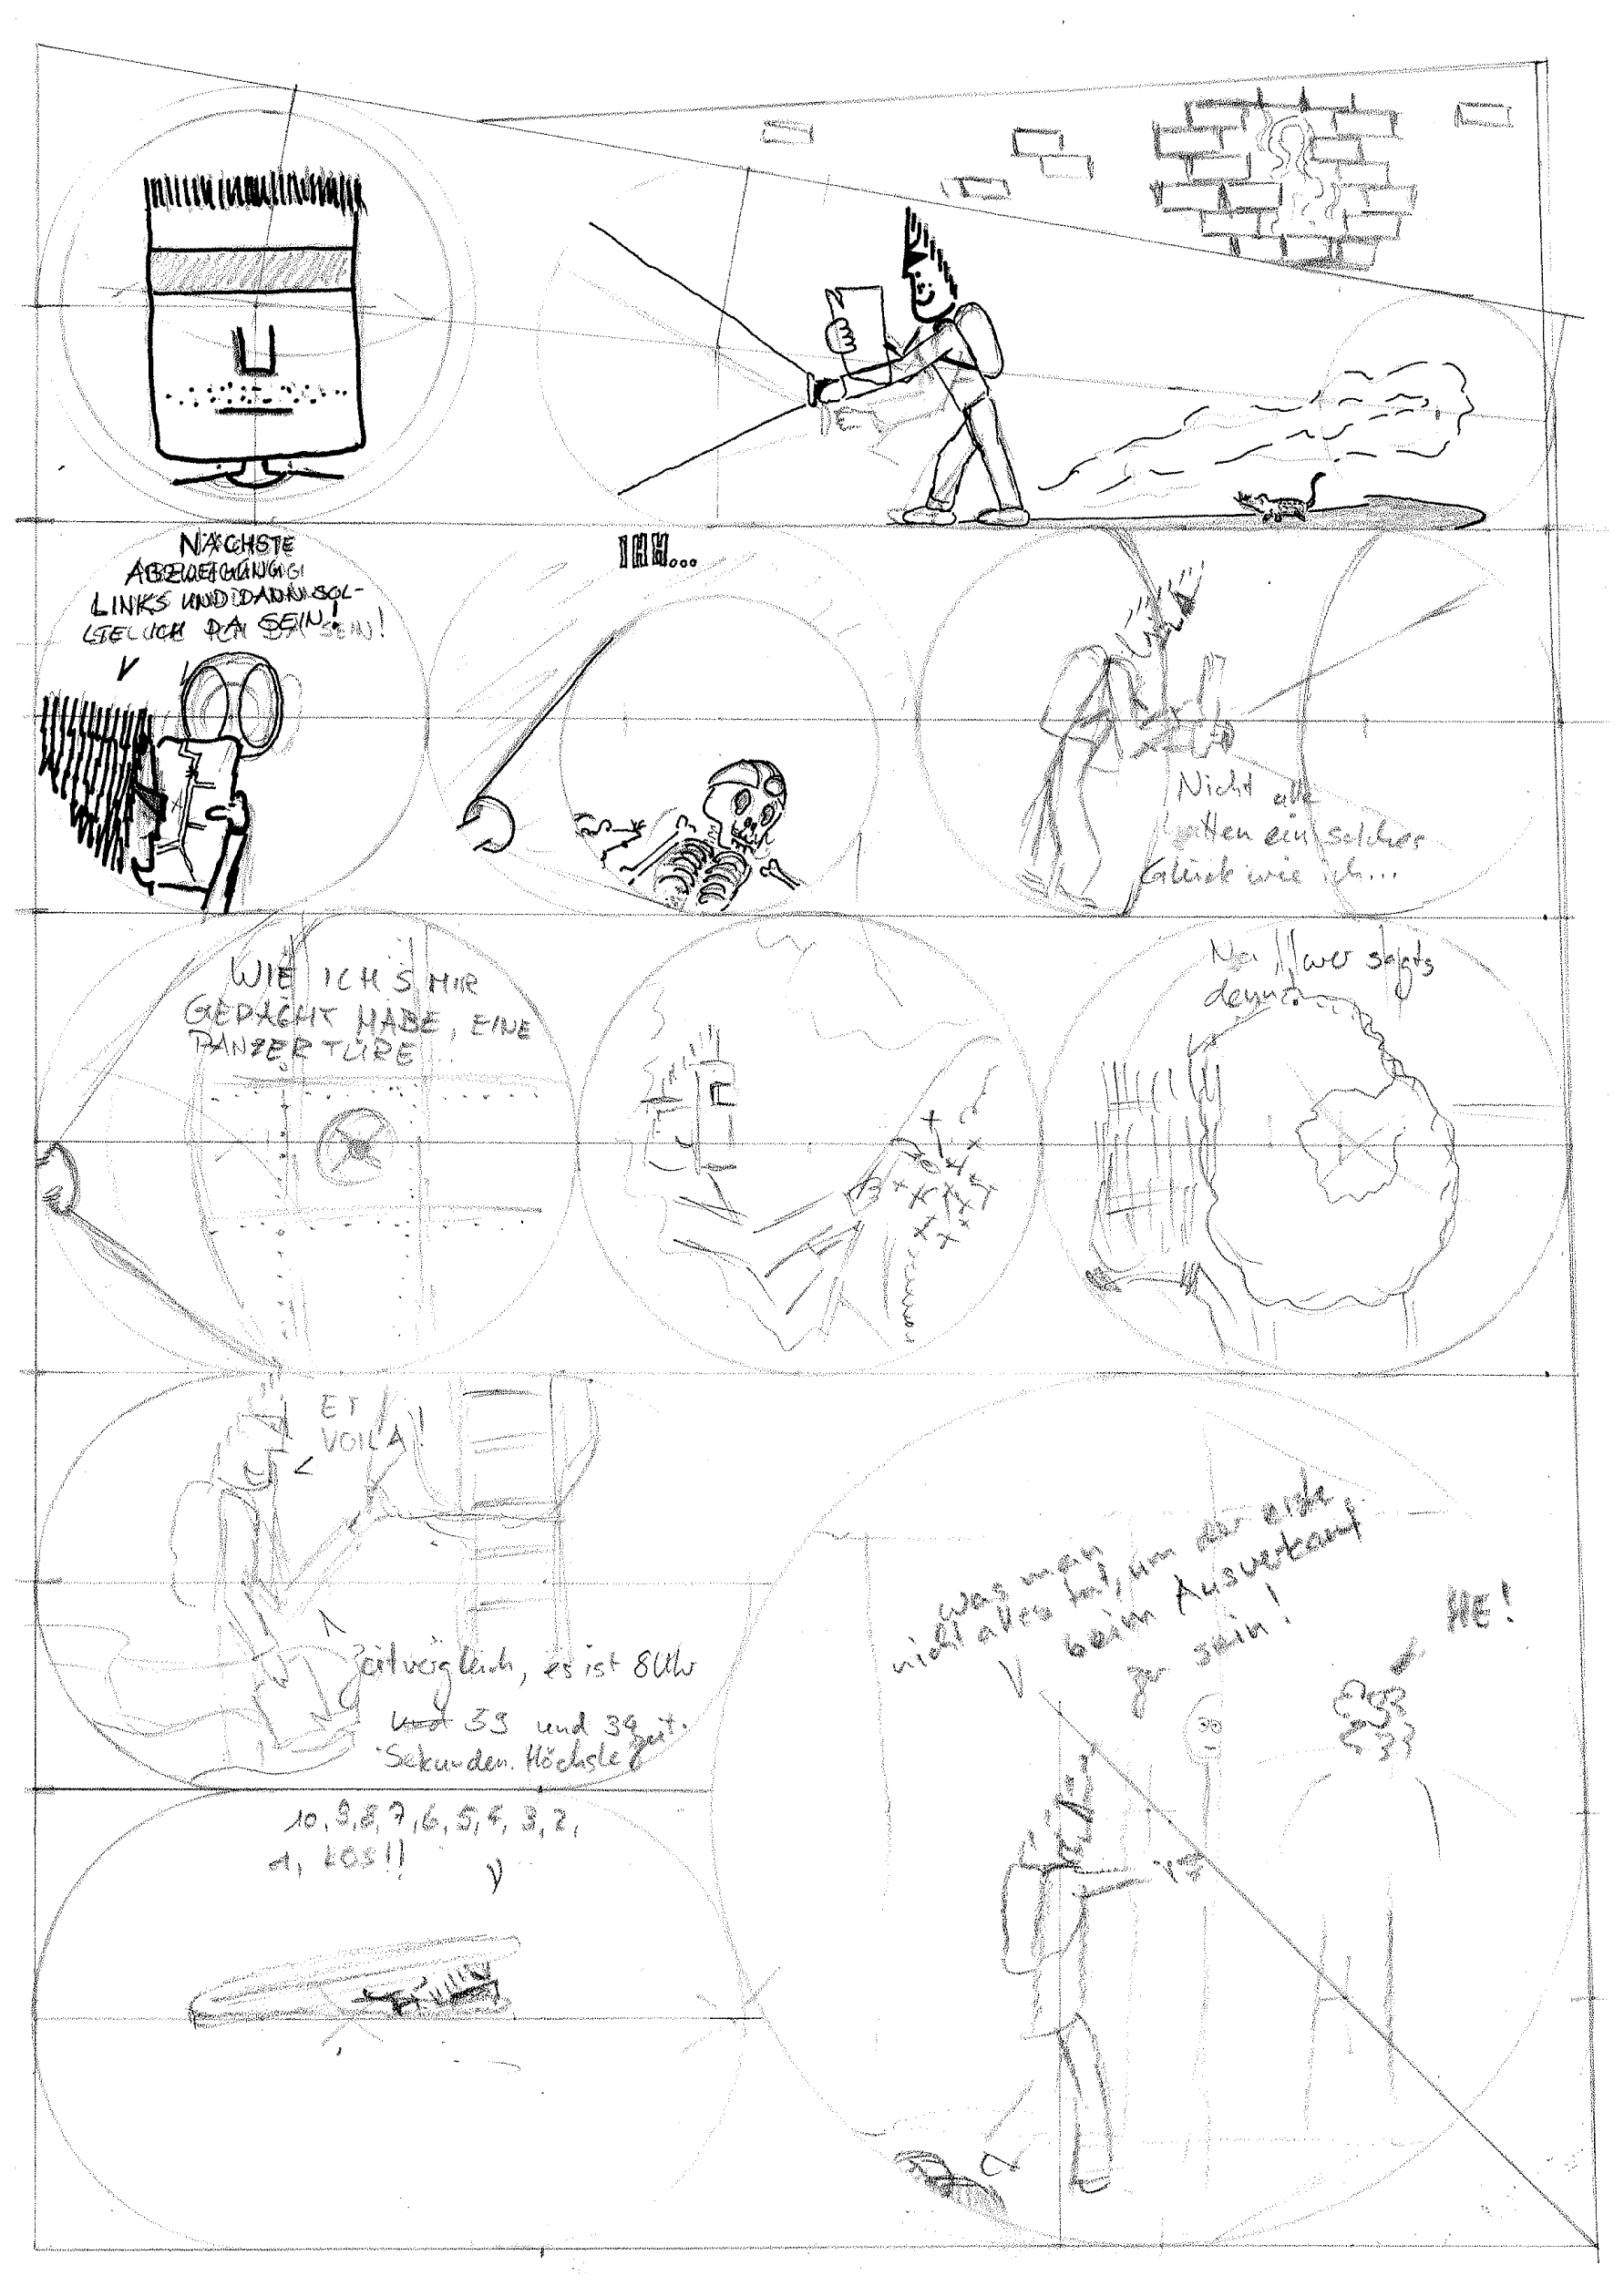 NÄCHSTE
ABZWEIGUNG
LINKS UND DANN SOL-
LTE ICH DA SEIN!
IHH...
Nicht alle
hatten ein solches
Glück wie ich...
WIE ICH'S MIR
GEDACHT HABE, EINE
PANZERTÜRE...
Na, wer sagts
denn
ET
VOILA!
Zeitvergleich, es ist 8 Uhr
und 59 und 34
Sekunden. Höchste zeit.
was man
nicht alles tut, um der erste
beim Ausverkauf
zu sein!
HE!
10, 9, 8, 7, 6, 5, 4, 3, 2,
1, LOS!!